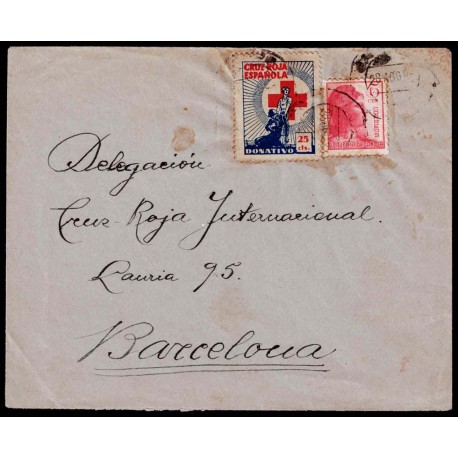 CRUZ ROJA
ESPAÑOLA
25
cts.
DONATIVO
Delegación
Cruz-Roja Internacional.
Lauria 95.
Barcelona